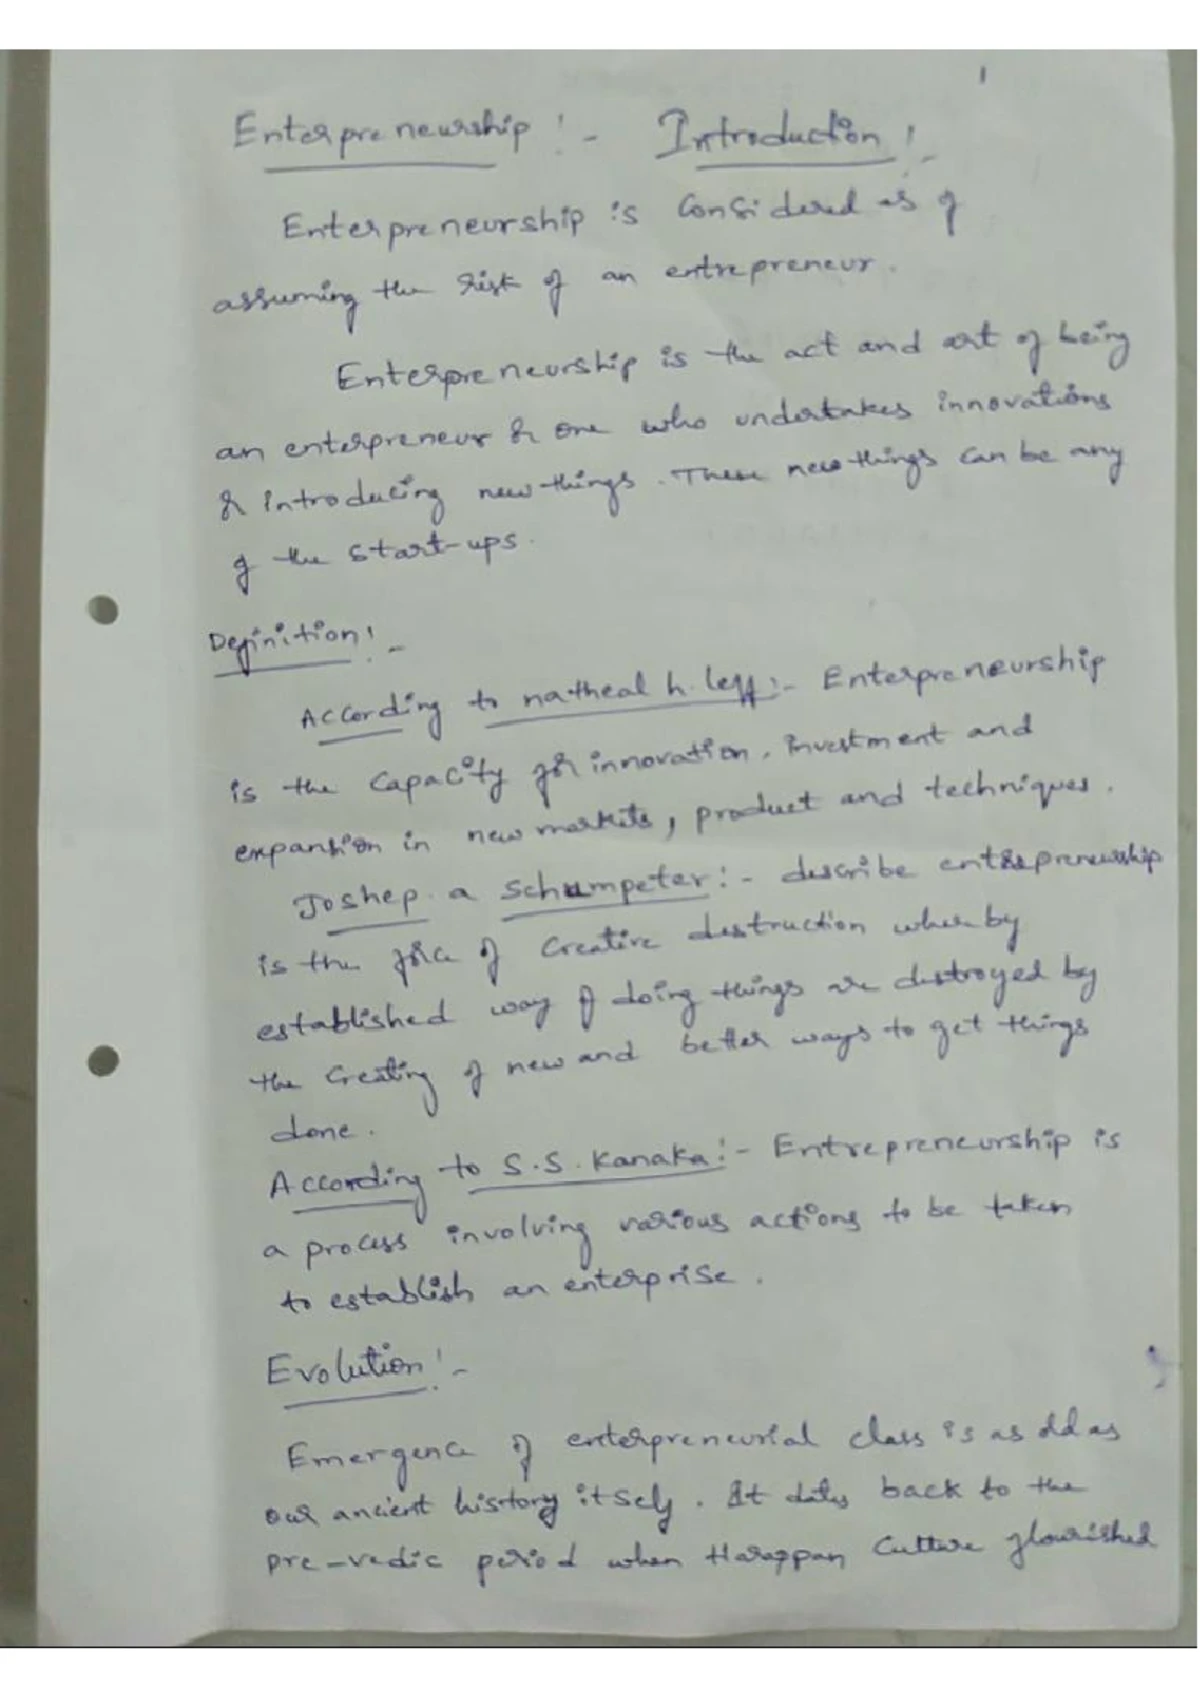 1
Enterpreneurship :- Introduction :-
Enterpreneurship is considered as of
assuming the risk of an entrepreneur.
Enterpreneurship is the act and art of being
an enterpreneur & one who undertakes innovations
& introducing new things. These new things can be any
of the start-ups.
Definition :-
According to natheal h. leff :- Enterpreneurship
is the capacity for innovation, investment and
expansion in new markets, product and techniques.
Joshep a schumpeter :- describe enterpreneurship
is the force of creative destruction whereby
established way of doing things are destroyed by
the creating of new and better ways to get things
done.
According to S.S. Kanaka :- Entrepreneurship is
a process involving various actions to be taken
to establish an enterprise.
Evolution :-
Emergence of enterpreneurial class is as old as
our ancient history itself. It dates back to the
pre-vedic period when Harappan culture flourished